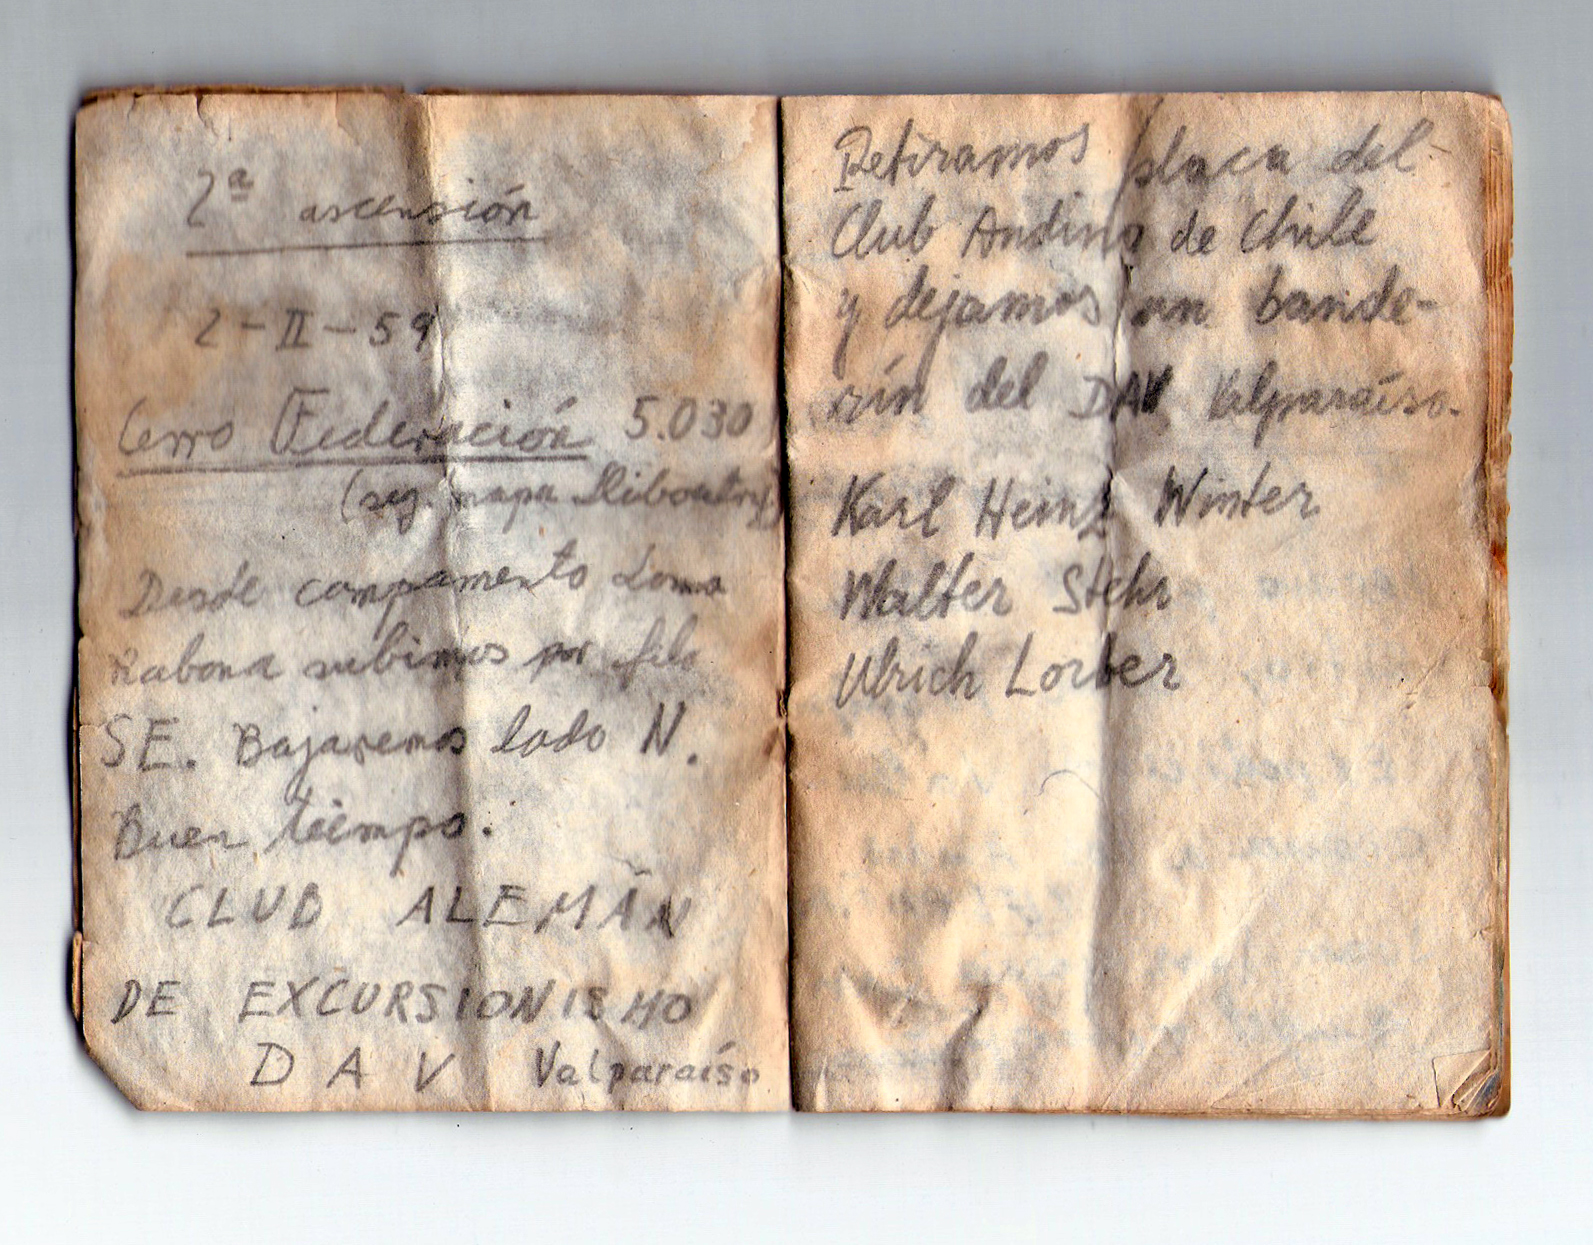 2ª ascensión
2-II-59
Cerro Federación 5.030
(seg. mapa Lliboutry)
Desde campamento Loma
Rabona subimos por filo
SE. Bajaremos lado N.
Buen tiempo.
CLUB ALEMÁN
DE EXCURSIONISMO
DAV Valparaíso
Retiramos placa del
Club Andino de Chile
y dejamos un bande-
rín del DAV Valparaíso.
Karl Heinz Winter
Walter Stehr
Ulrich Lorber